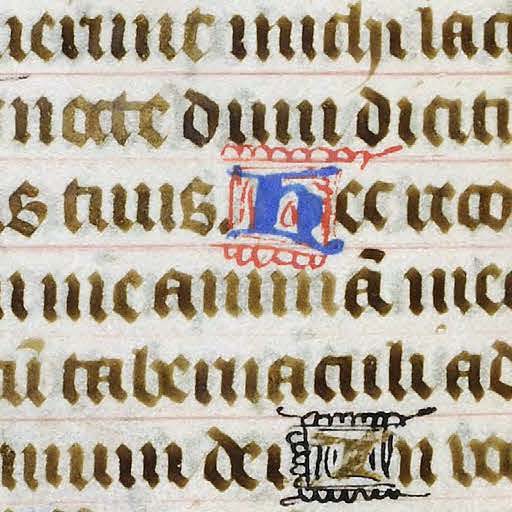 uerunt michi lac
nocte dum dicit
s tuus Hec reco
in me animā me
cū tabernaculi ad
mum dei In vo